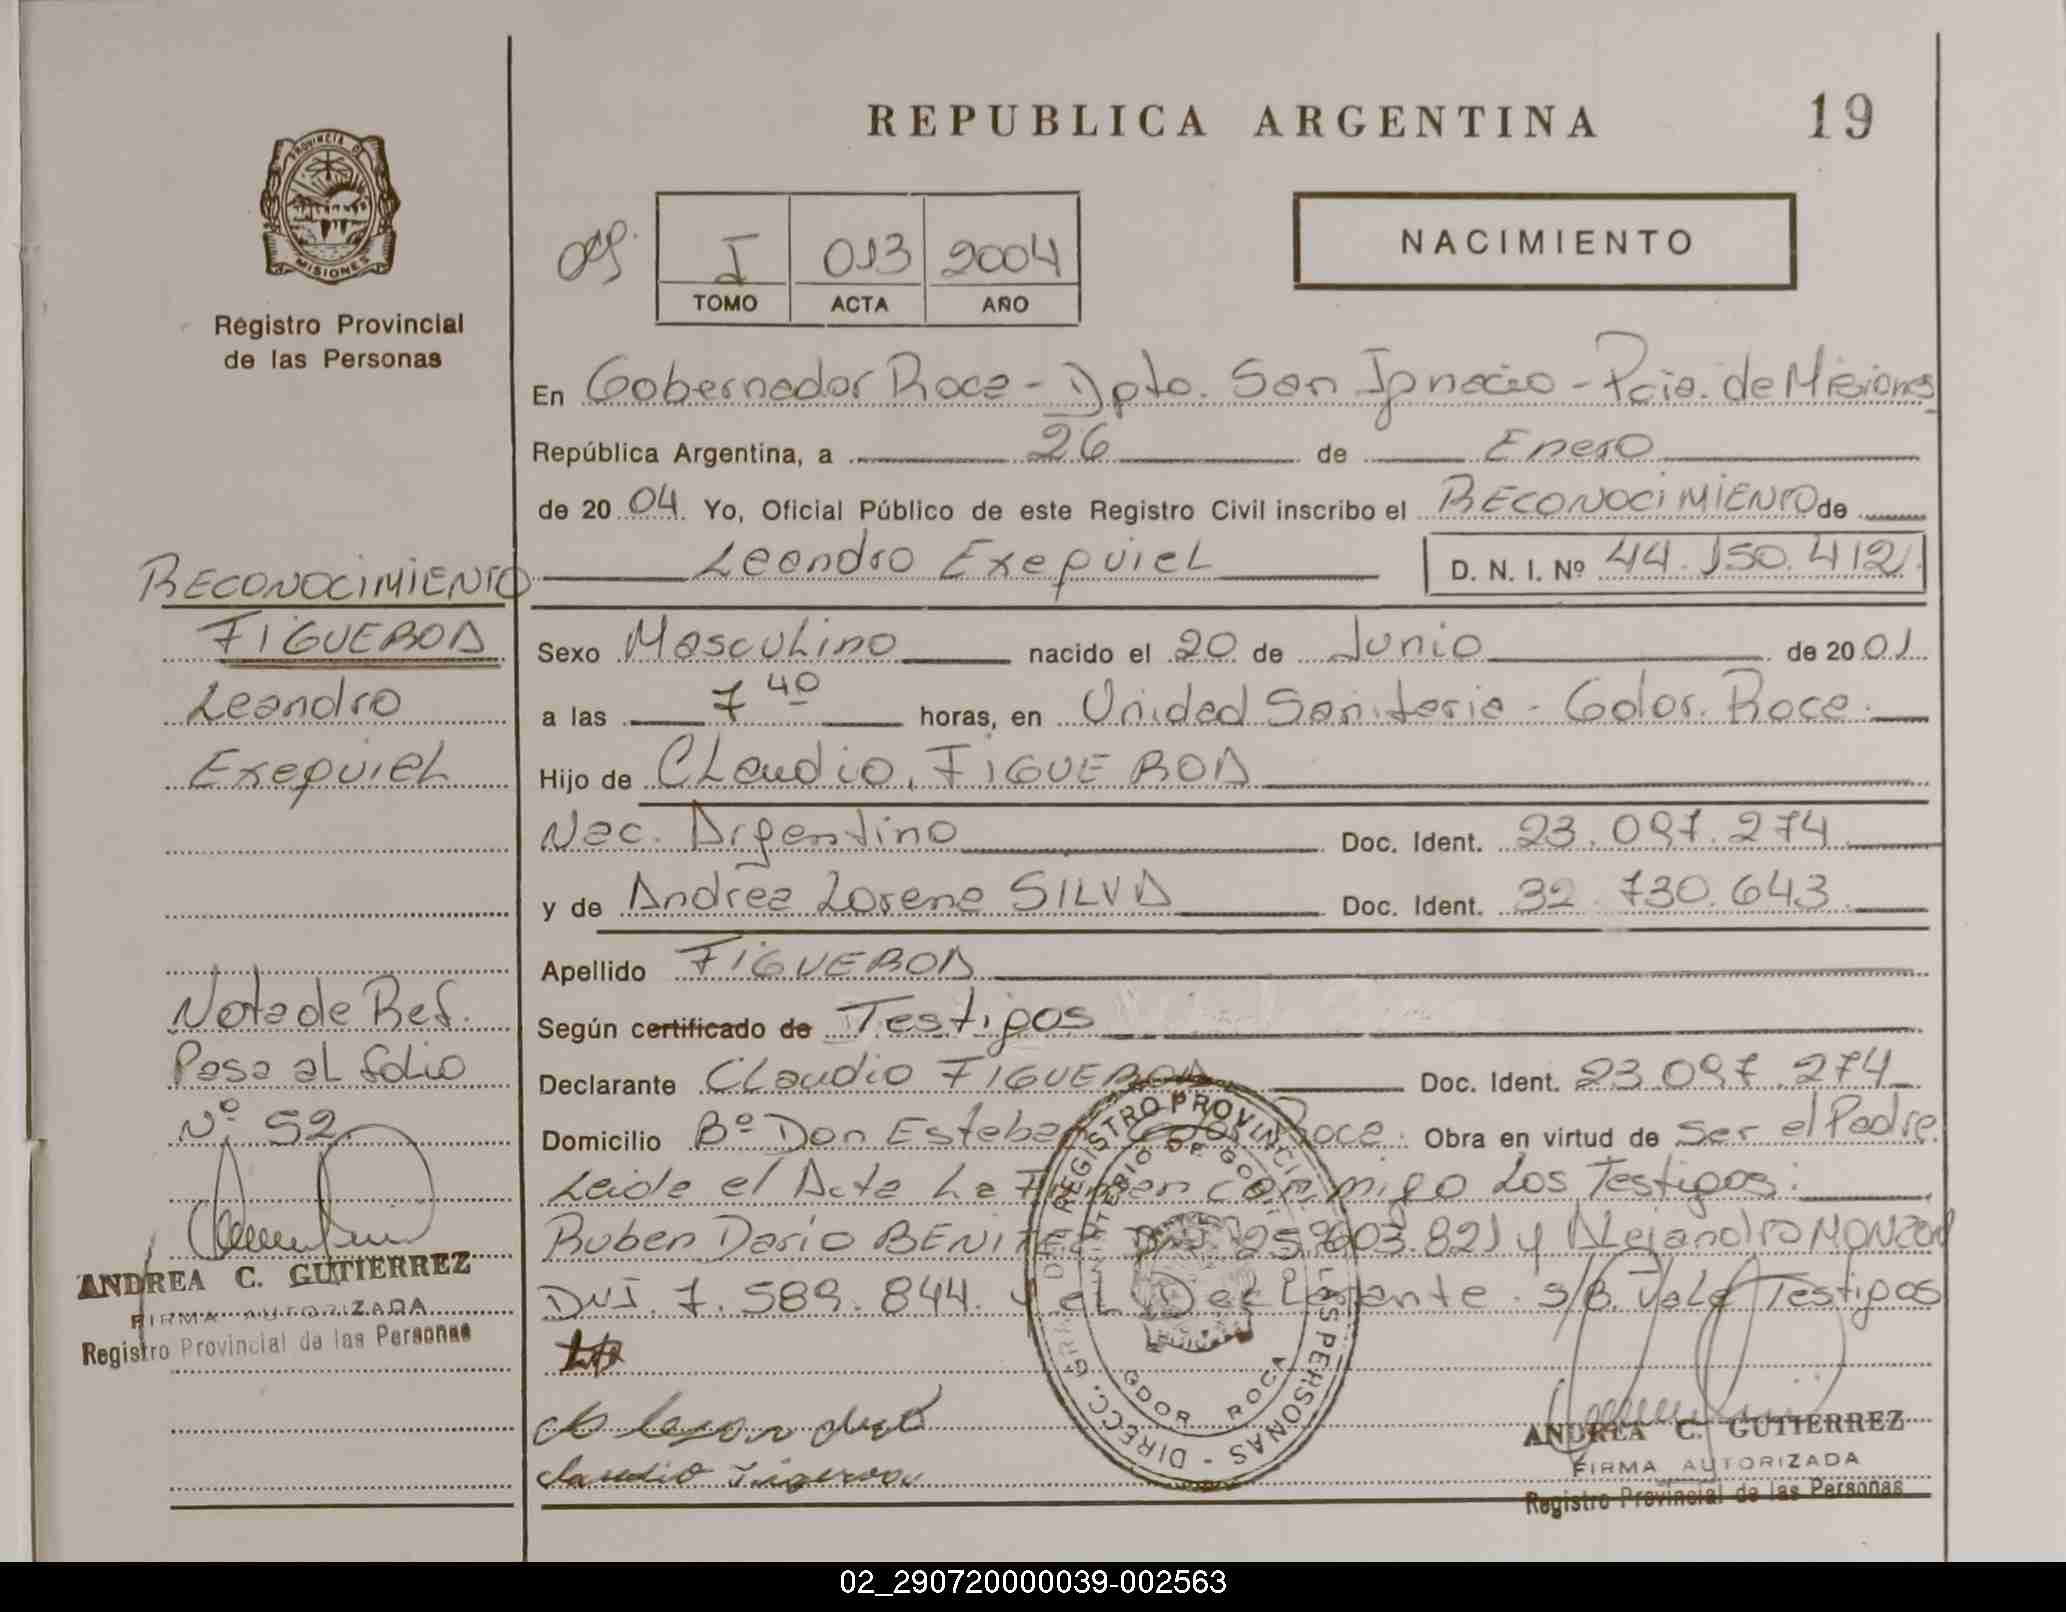 REPUBLICA ARGENTINA
19
PROVINCIA DE
MISIONES
Registro Provincial
de las Personas
I 013 2004
TOMO ACTA AÑO
NACIMIENTO
En Gobernador Roca - Dpto. San Ignacio - Pcia. de Misiones
República Argentina, a 26 de Enero
de 2004. Yo, Oficial Público de este Registro Civil inscribo el RECONOCIMIENTO de
Leandro Exequiel D. N. I. Nº 44.150.412
Sexo Masculino nacido el 20 de Junio de 2001
a las 7 40 horas, en Unidad Sanitaria - Gdor. Roca.
Hijo de Claudio, FIGUEROA
Nac. Argentino Doc. Ident. 23.097.274
y de Andrea Lorena SILVA Doc. Ident. 32.730.643
Apellido FIGUEROA
Según certificado de Testigos
Declarante Claudio FIGUEROA Doc. Ident. 23.097.274
Domicilio Bº Don Esteban Roca. Obra en virtud de ser el Padre.
Leida el Acta La Firman conmigo Los Testigos:
Ruben Dario BENITEZ DNI 25.603.821 y Alejandro MONZON
DNI. 7.589.844. y el Declarante. s/b. Vale Testigos
Claudio Figueroa
RECONOCIMIENTO
FIGUEROA
Leandro
Exequiel
Nota de Ref.
Pasa al folio
Nº 52
ANDREA C. GUTIERREZ
FIRMA AUTORIZADA
Registro Provincial de las Personas
REGISTRO PROVINCIAL DE LAS PERSONAS - DIRECC. GRAL
GDOR ROCA
ANDREA C. GUTIERREZ
FIRMA AUTORIZADA
Registro Provincial de las Personas
02_290720000039-002563